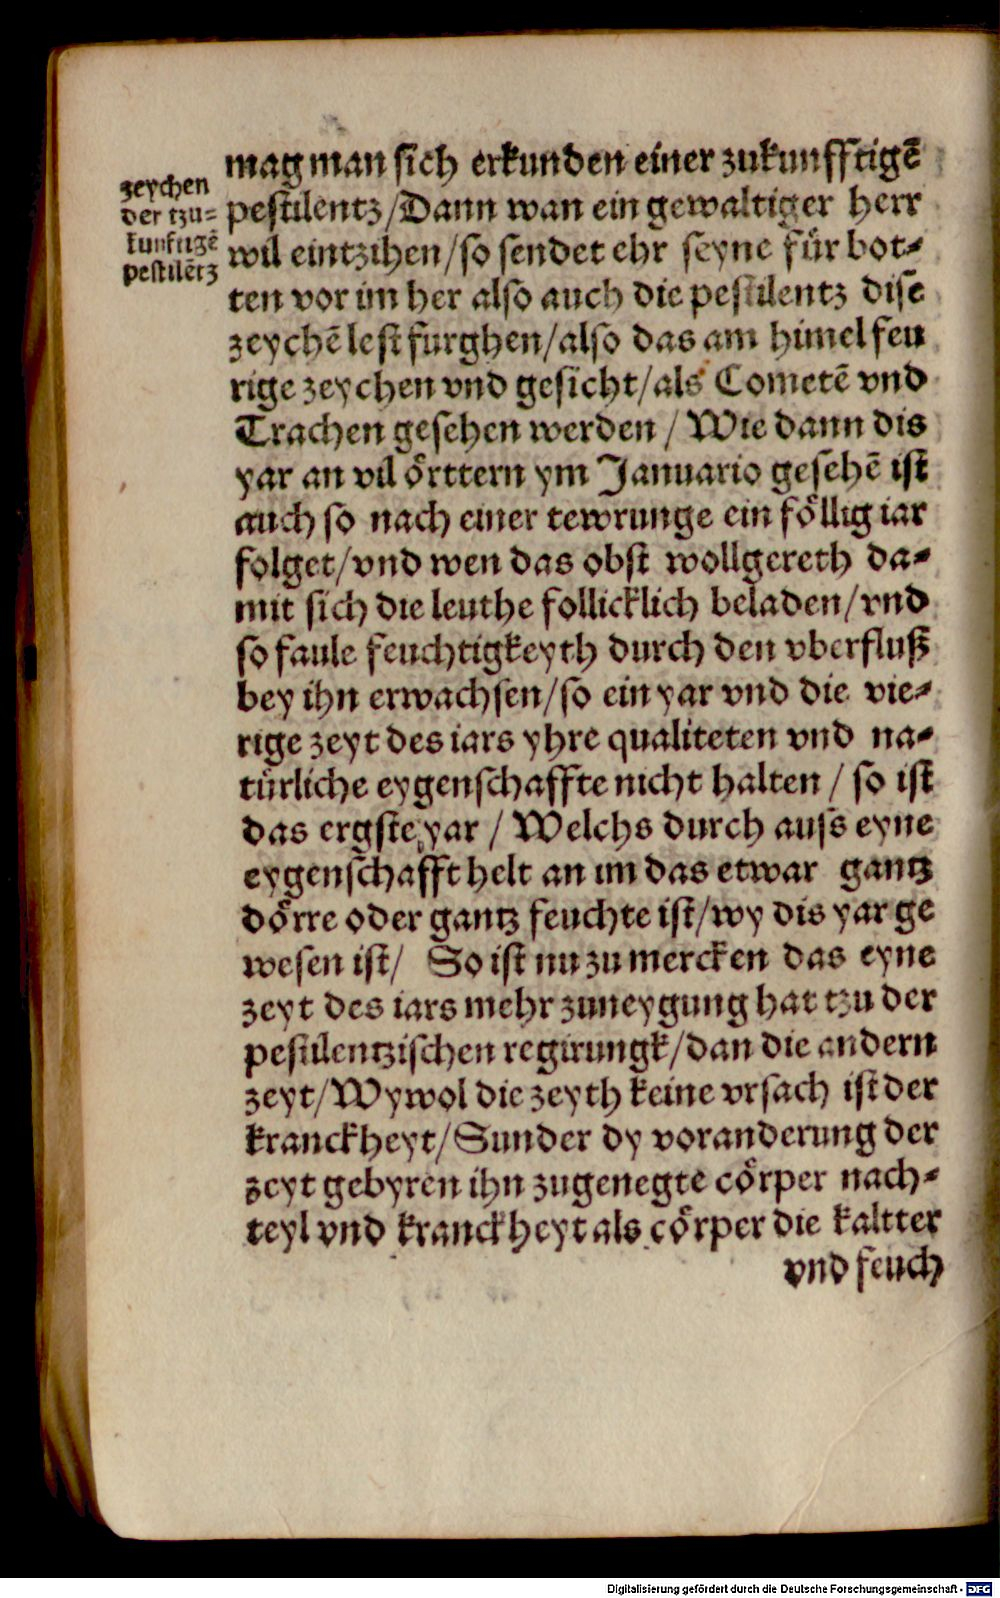 zeychen
der tzu=
kunfftgē
pestilētz
mag man sich erkunden einer zukunfftigē
pestilentz/Dann wan ein gewaltiger herr
wil eintzihen/so sendet ehr seyne für bot-
ten vor im her also auch die pestilentz dise
zeychē lest furghen/also das am himel feu
rige zeychen vnd gesicht/als Cometē vnd
Trachen gesehen werden / Wie dann dis
yar an vil örttern ym Januario gesehē ist
auch so nach einer tewrunge ein föllig iar
folget/vnd wen das obst wollgereth da-
mit sich die leuthe follicklich beladen/vnd
so faule feuchtigkeyth durch den vberfluß
bey ihn erwachsen/so ein yar vnd die vie-
rige zeyt des iars yhre qualiteten vnd na-
türliche eygenschaffte nicht halten / so ist
das ergste yar / Welchs durch auss eyne
eygenschafft helt an im das etwar gantz
dörre oder gantz feuchte ist/wy dis yar ge
wesen ist/ So ist nu zu mercken das eyne
zeyt des iars mehr zuneygung hat tzu der
pestilentzischen regirungk/dan die andern
zeyt/Wywol die zeyth keine vrsach ist der
kranckheyt/Sunder dy voranderung der
zeyt gebyren ihn zugenegte cörper nach-
teyl vnd kranckheyt als cörper die kaltter
vnd feuch
Digitalisierung gefördert durch die Deutsche Forschungsgemeinschaft - DFG